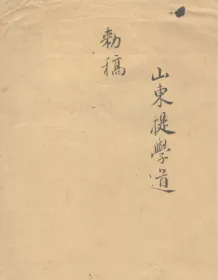 山東提學道
勅稿